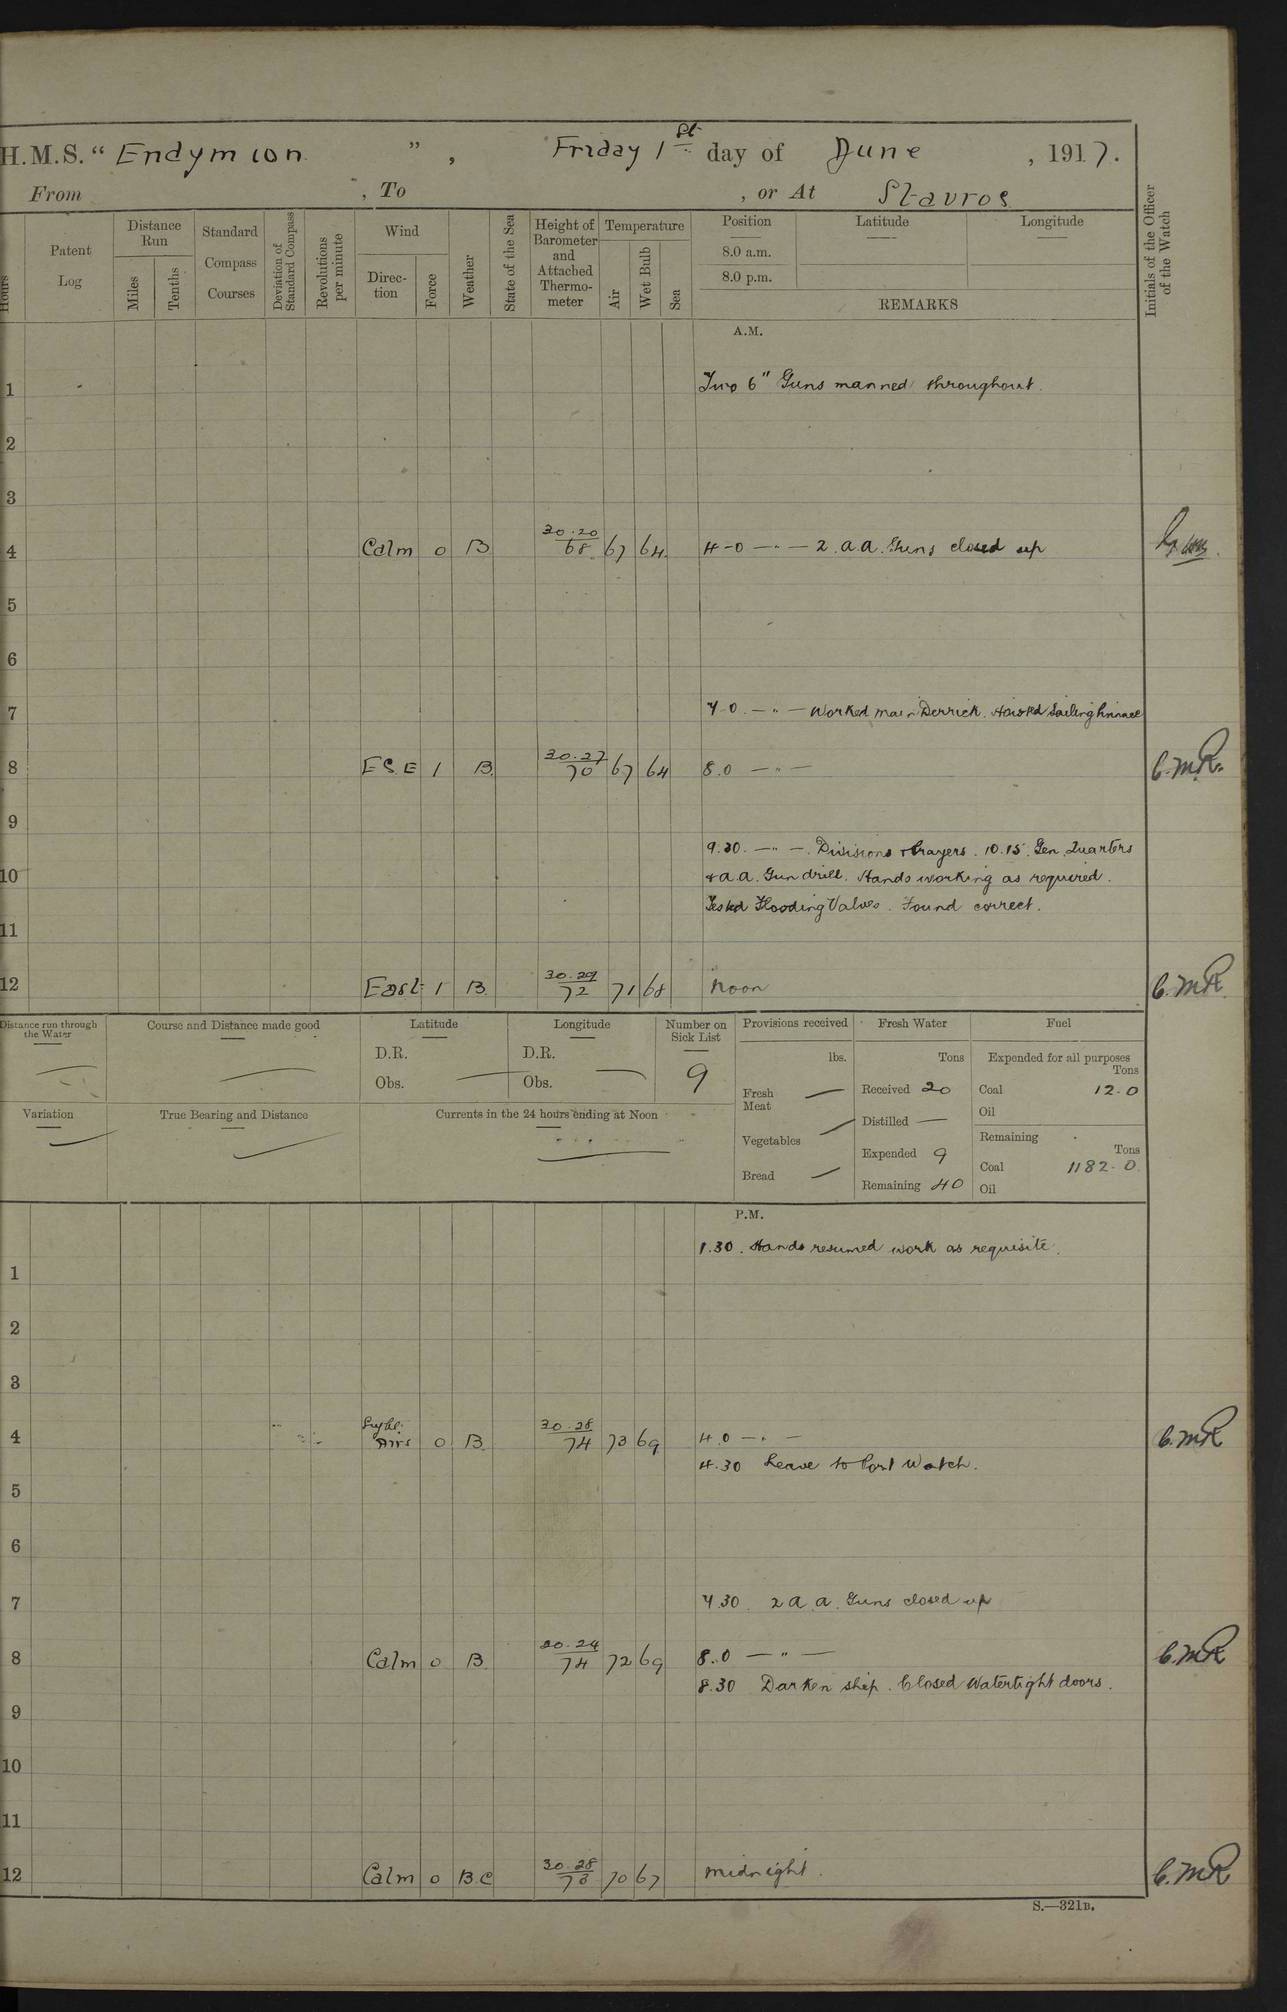 H.M.S. " Endymion " , Friday 1st day of June , 1917.
From , To , or At Stavros
Hours
Patent Log
Distance Run
Miles
Tenths
Standard Compass Courses
Deviation of Standard Compass
Revolutions per minute
Wind
Direc-tion
Force
Weather
State of the Sea
Height of Barometer and Attached Thermo-meter
Temperature
Air
Wet Bulb
Sea
Position
Latitude
Longitude
8.0 a.m.
8.0 p.m.
REMARKS
Initials of the Officer of the Watch
A.M.
1 Two 6" Guns manned throughout.
2
3
4 Calm 0 B 30.20 68 67 64 4-0 — " — 2. a.a. Guns closed up
5
6
7 7-0. — " — Worked main Derrick. Hoisted Sailing Pinnace
8 ESE 1 B. 30.27 70 67 64 8.0 — " — C.M.R.
9
9.30. — " —. Divisions & Prayers. 10.15. Gen. Quarters
10 & a.a. Gun drill. Hands working as required.
Tested Flooding Valves. Found correct.
11
12 East 1 B. 30.29 72 71 68 Noon C.M.R.
Distance run through the Water
Course and Distance made good
Latitude
D.R.
Obs. —
Longitude
D.R.
Obs. —
Number on Sick List
9
Provisions received
lbs.
Fresh Meat —
Vegetables —
Bread —
Fresh Water
Tons
Received 20
Distilled —
Expended 9
Remaining 40
Fuel
Expended for all purposes
Tons
Coal 12.0
Oil
Remaining
Tons
Coal 1182.0.
Oil
Variation
True Bearing and Distance
Currents in the 24 hours ending at Noon
P.M.
1.30. Hands resumed work as requisite.
1
2
3
4 Light Airs 0 B. 30.28 74 73 69 4.0 — " — C.M.R
4.30 Leave to Port Watch.
5
6
7 7.30. 2 a.a. Guns closed up
8 Calm 0 B. 30.24 74 72 69 8.0 — " — C.M.R
8.30 Darken ship. Closed Watertight doors.
9
10
11
12 Calm 0 B.C 30.28 73 70 67 Midnight. C.M.R
S.—321B.